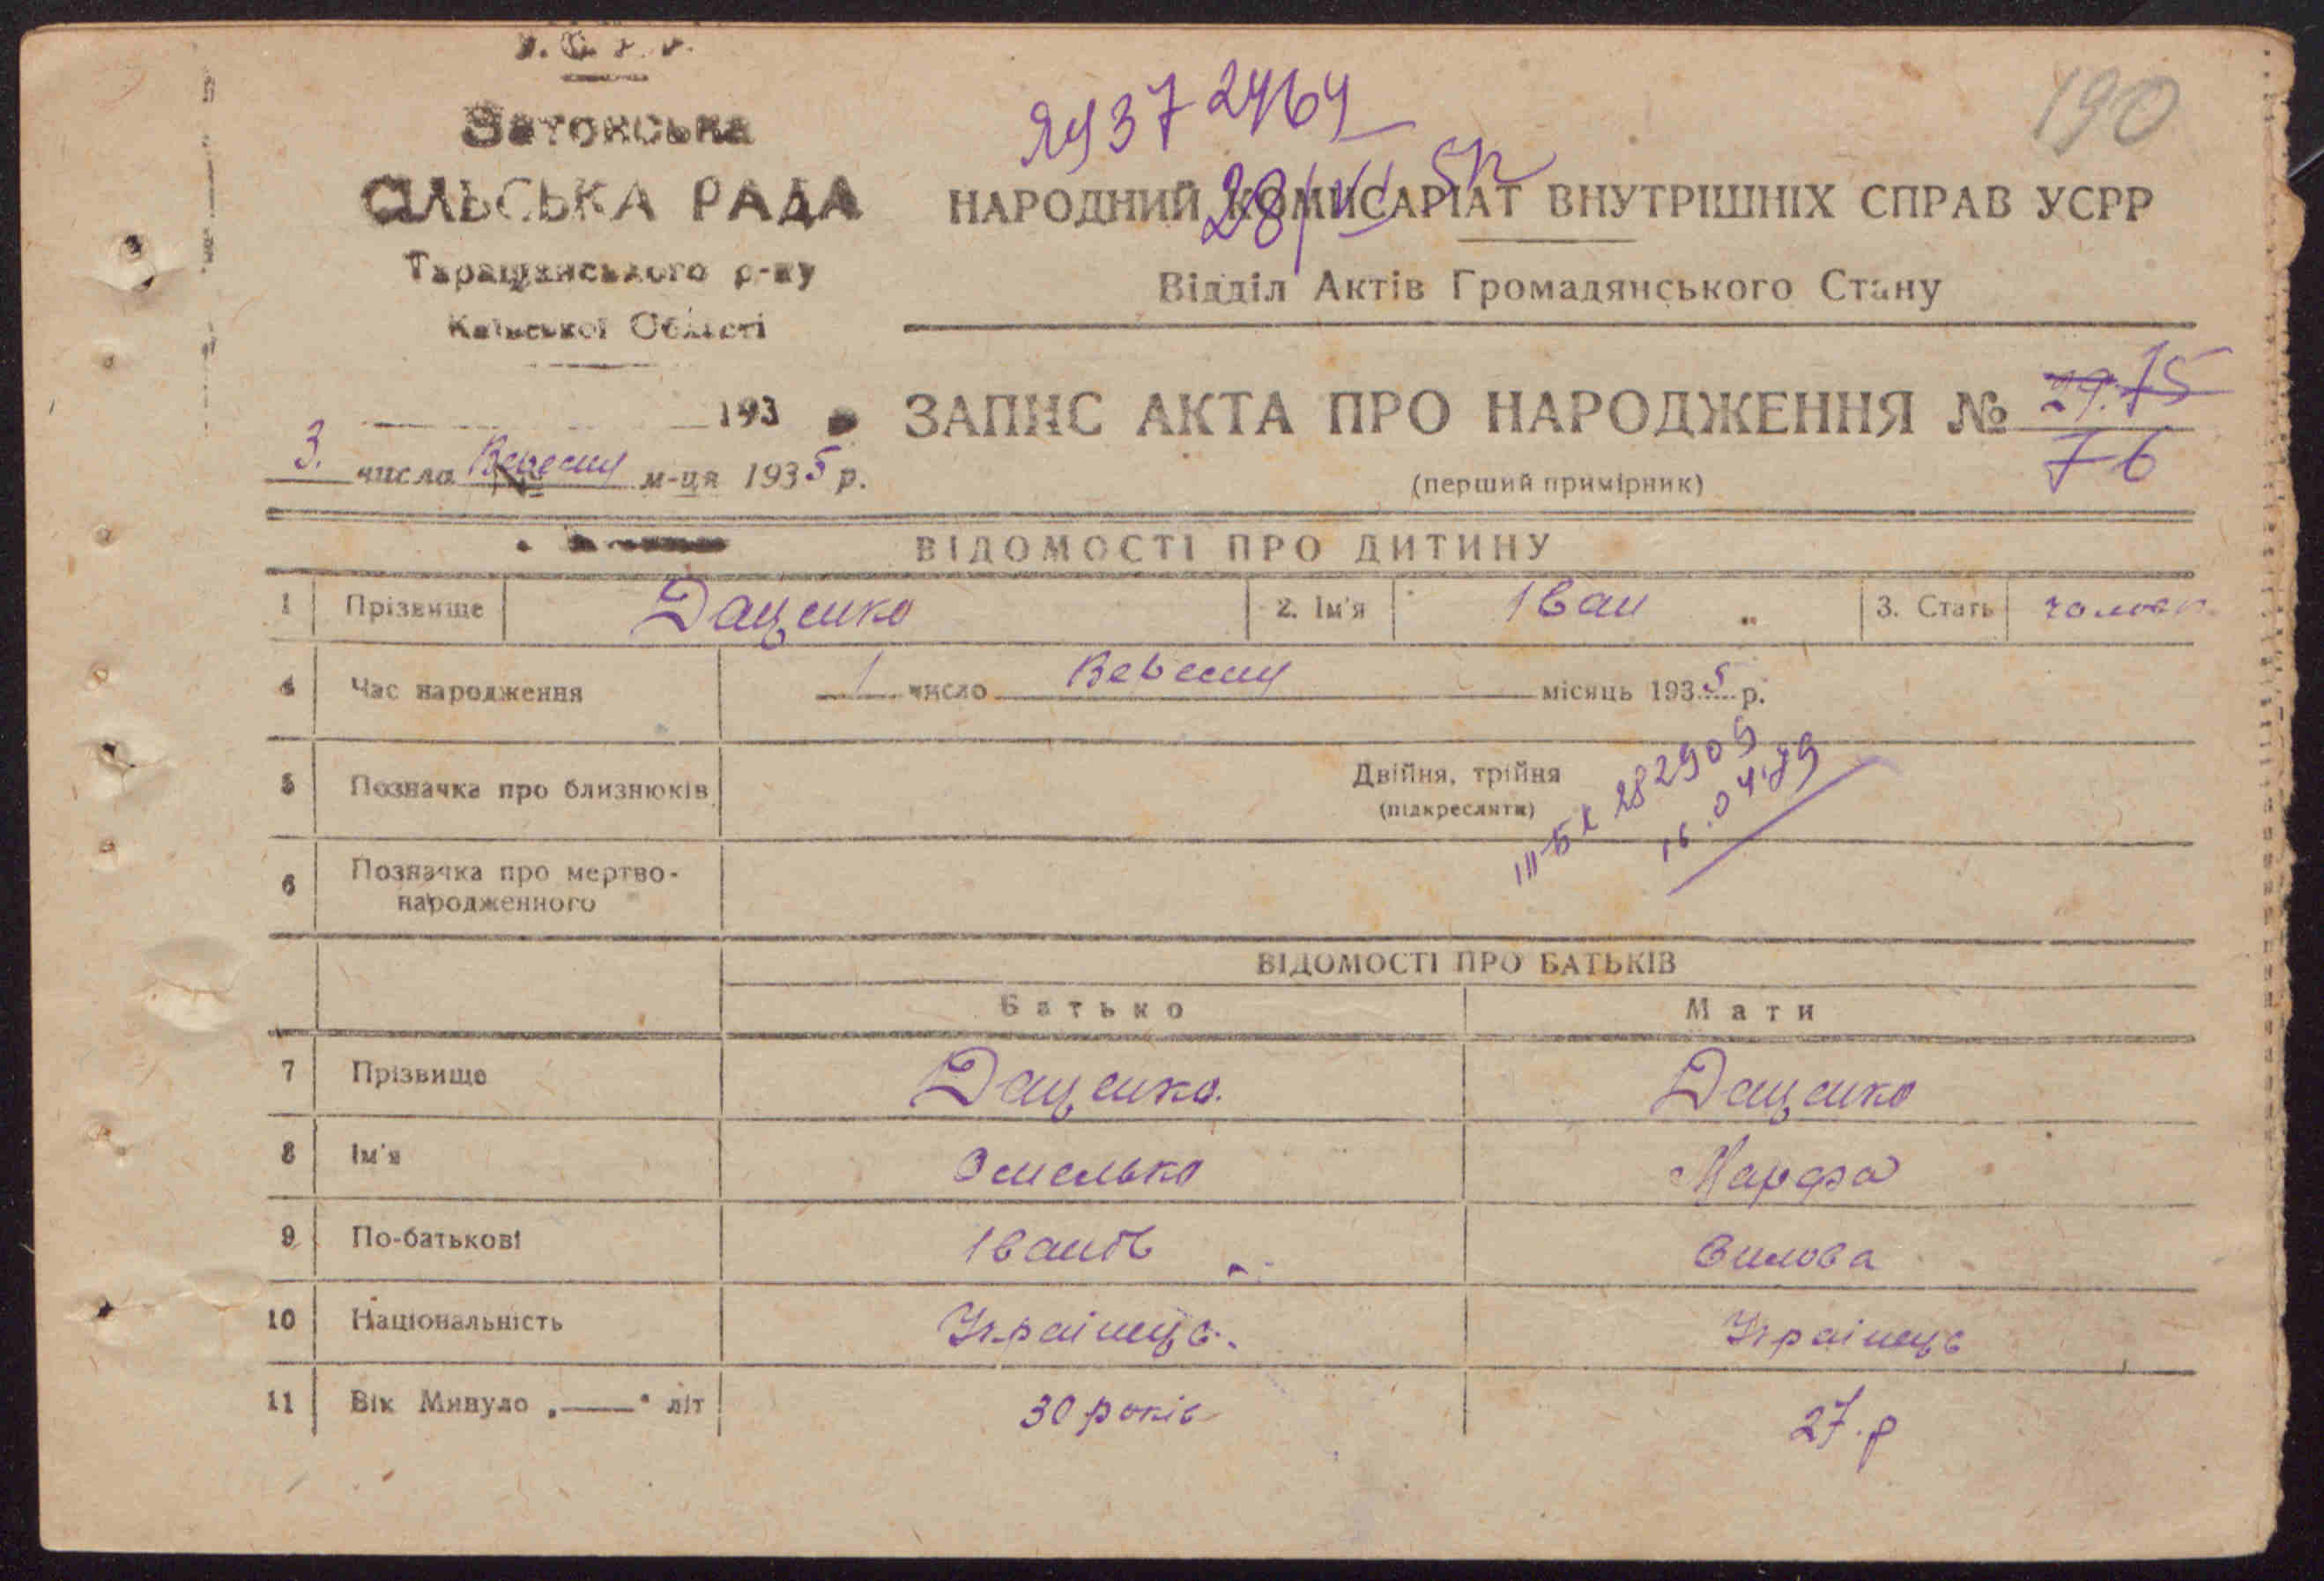 190
2464
28/VI
У.С.Р.Р.
СІЛЬСЬКА РАДА
Таращанського р-ну
Київської Області
193
3. число Вересня м-ця 1935 р.
НАРОДНИЙ КОМИСАРІАТ ВНУТРІШНІХ СПРАВ УСРР
Відділ Актів Громадянського Стану
ЗАПИС АКТА ПРО НАРОДЖЕННЯ № 75
76
(перший примірник)
ВІДОМОСТІ ПРО ДИТИНУ
1 Прізвище Даценко 2. Ім'я Іван 3. Стать чоловіч.
4 Час народження 1 число Вересня місяць 1935 р.
5 Позначка про близнюків Двійня, трійня
(підкреслити)
282909
16.04.89
6 Позначка про мертво-
народженного
ВІДОМОСТІ ПРО БАТЬКІВ
Батько Мати
7 Прізвище Даценко. Даценко
8 Ім'я Омелько Марфа
9 По-батькові Іванов
10 Національність Українць. Українць
11 Вік Минуло „——" літ 30 років 27.р